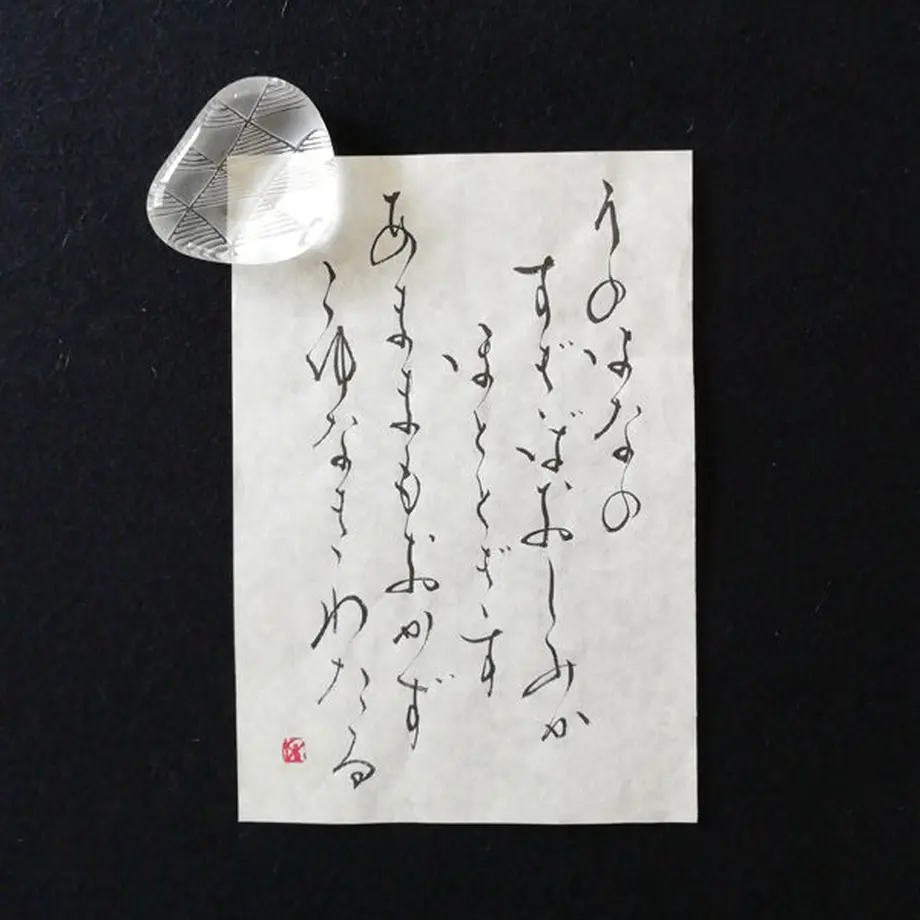 うのはなの
すぎばおしみか
ほととぎす
あままもおかず
こゆなきわたる